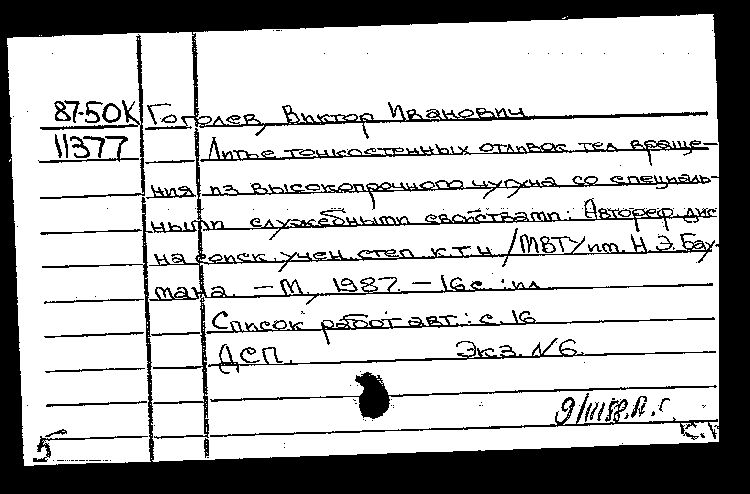 87-50К Гоголев, Виктор Иванович
11377 Литье тонкостенных отливок тел враще-
ния из высокопрочного чугуна со специаль-
ными служебными свойствами: Автореф. дис
на соиск. учен. степ. к.т.н. /МВТУ им. Н.Э. Бау-
мана. – М., 1987. – 16 с. : ил.
Список работ авт.: с. 16
ДСП. Экз. №6.
9/III 88. Л. г.
5